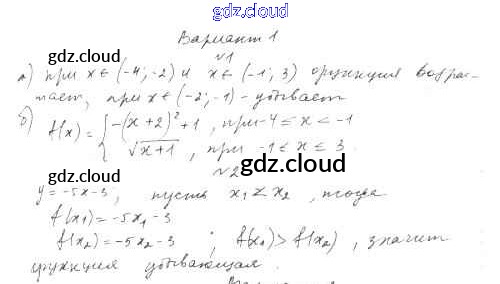 gdz.cloud
Вариант 1
gdz.cloud
№1
gdz.cloud
а) при x ∈ (-4; -2) и x ∈ (-1; 3) функция возрас-
тает, при x ∈ (-2; -1) - убывает
gdz.cloud
б) f(x) = { -(x + 2)² + 1, при -4 ≤ x < -1
√x+1, при -1 ≤ x ≤ 3.
gdz.cloud
№2
gdz.cloud
y = -5x - 3; пусть x₁ < x₂, тогда
f(x₁) = -5x₁ - 3
f(x₂) = -5x₂ - 3; f(x₁) > f(x₂), значит
функция убывающая.